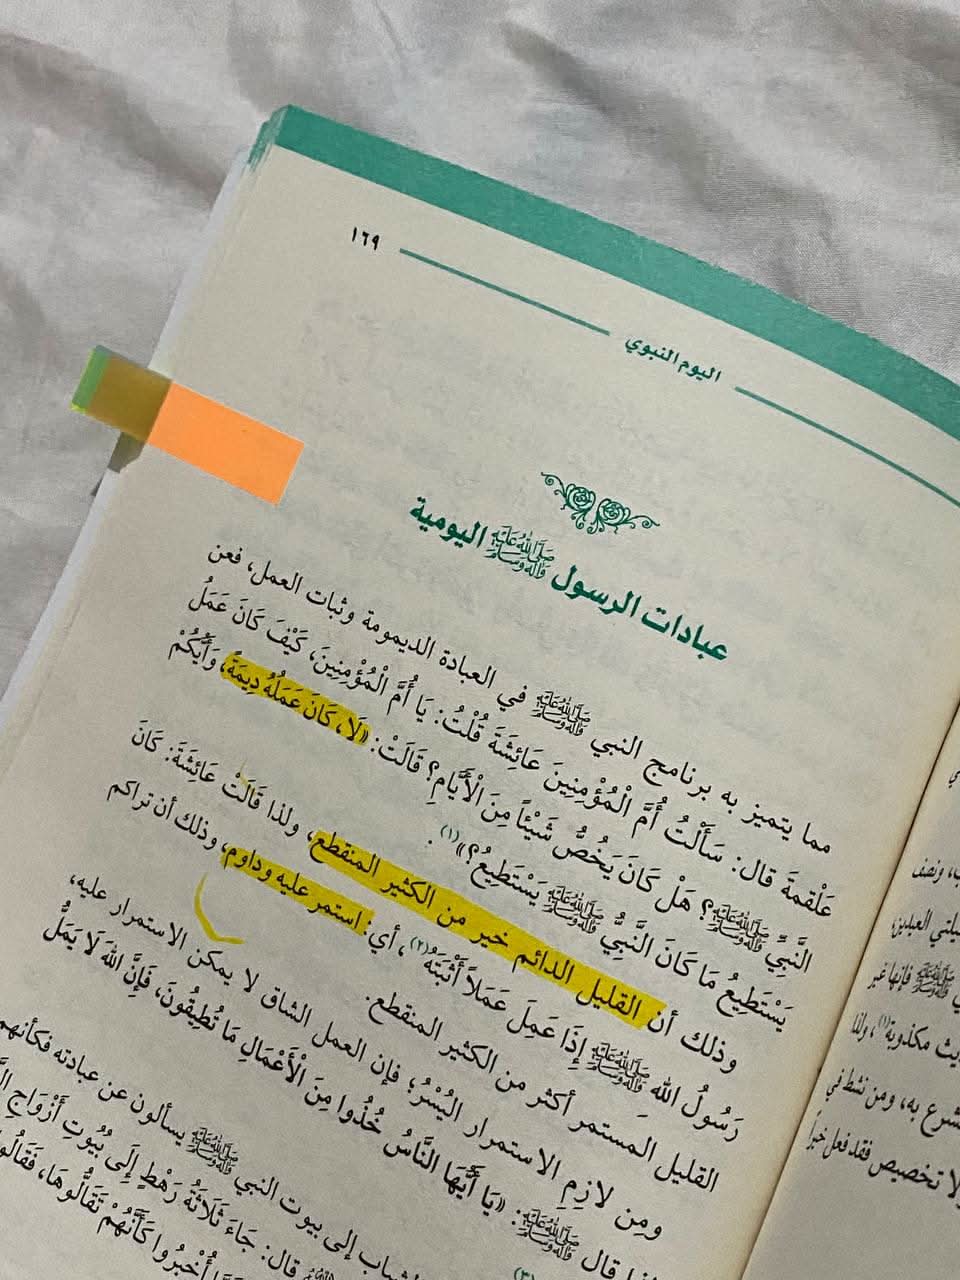 ١٦٩
اليوم النبوي
عبادات الرسول ﷺ اليومية
مما يتميز به برنامج النبي ﷺ في العبادة الديمومة وثبات العمل، فعن
عَلْقمةَ قال: سَأَلْتُ أُمَّ الْمُؤْمِنِينَ عَائِشَةَ قُلْتُ: يَا أُمَّ الْمُؤْمِنِينَ، كَيْفَ كَانَ عَمَلُ
النَّبِيِّ ﷺ؟ هَلْ كَانَ يَخُصُّ شَيْئًا مِنَ الْأَيَّامِ؟ قَالَتْ: «لَا، كَانَ عَمَلُهُ دِيمَةً، وَأَيُّكُمْ
يَسْتَطِيعُ مَا كَانَ النَّبِيُّ ﷺ يَسْتَطِيعُ؟»(١).
وذلك أن القليل الدائم خير من الكثير المنقطع، ولذا قَالَتْ عَائِشَةَ: كَانَ
رَسُولُ اللهِ ﷺ إِذَا عَمِلَ عَمَلاً أَثْبَتَهُ(٢)، أي: استمر عليه وداوم، وذلك أن تراكم
القليل المستمر أكثر من الكثير المنقطع.
ومِن لازِمِ الاستمرار اليُسْرُ؛ فإن العمل الشاق لا يمكن الاستمرار عليه،
ولذا قال ﷺ: «يَا أَيُّهَا النَّاسُ خُذُوا مِنَ الْأَعْمَالِ مَا تُطِيقُونَ، فَإِنَّ اللهَ لَا يَمَلُّ
(٣)
إلى بيوت النبي ﷺ يسألون عن عبادته فكأنهم
قال: جَاءَ ثَلَاثَةُ رَهْطٍ إِلَى بُيُوتِ أَزْوَاجِ
أُخْبِرُوا كَأَنَّهُمْ تَقَالُّوهَا، فَقَالُوا
ونصف
العيدين،
ﷺ فإنها غير
مكذوبة(١)، ولذا
به، ومن نشط في
تخصيص فقد فعل خيراً